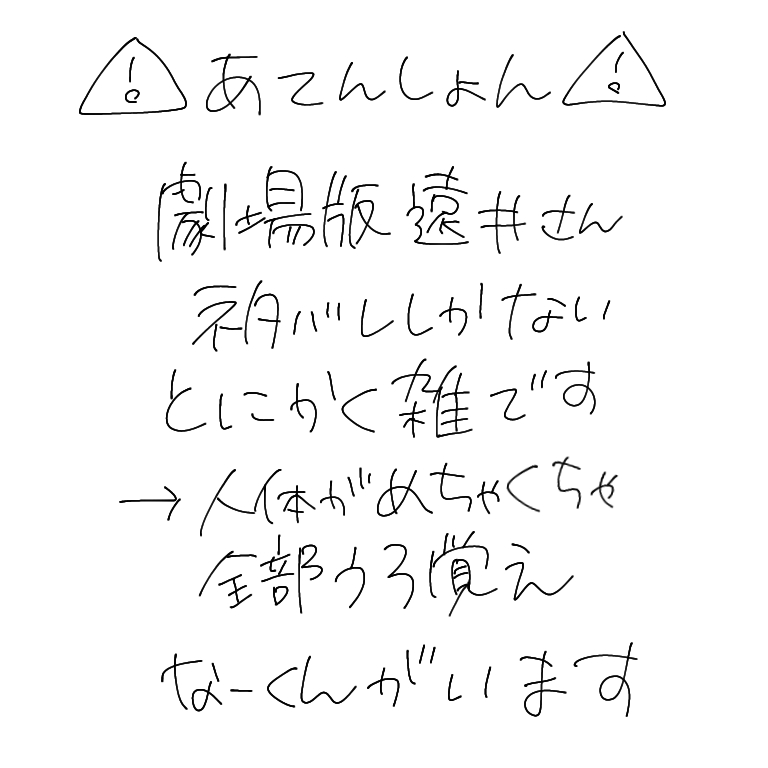 ⚠あてんしょん⚠
劇場版遠井さん
ネタバレしかない
とにかく雑です
→人体がめちゃくちゃ
全部うろ覚え
なーくんがいます